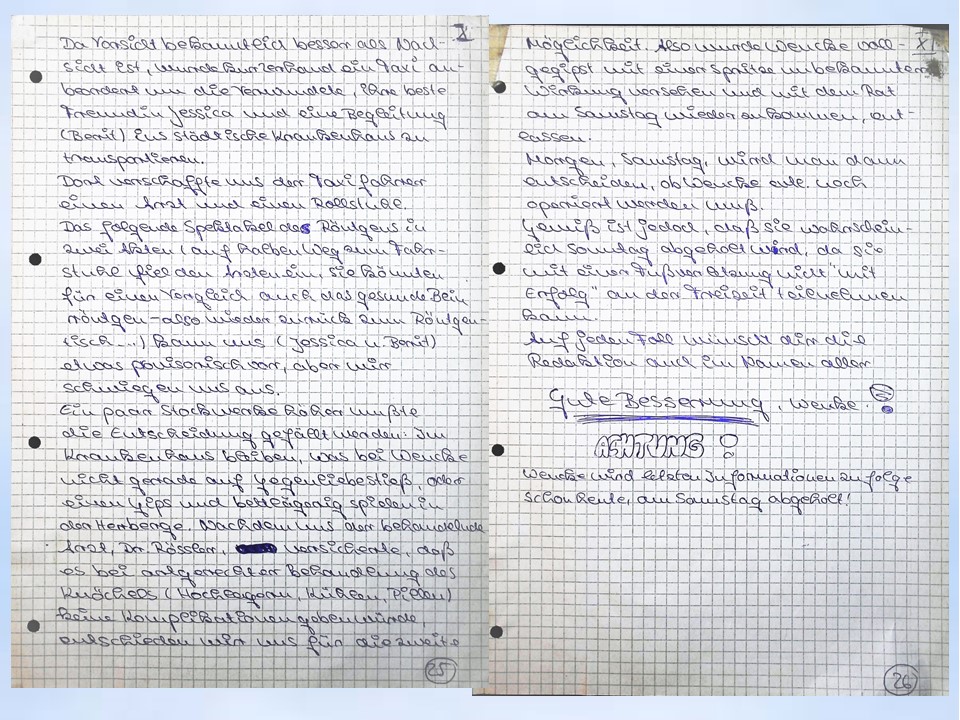 X
Da Vorsicht bekanntlich besser als Nach-
sicht ist, wurde kurzerhand ein Taxi an-
beordert um die Verwundete, ihre beste
Freundin Jessica und eine Begleitung
(Berrit) ins städtische Krankenhaus zu
transportieren.
Dort verschaffte uns der Taxifahrer
einen Arzt und einen Rollstuhl.
Das folgende Spektakel des Röntgens in
zwei Akten (auf halben Weg zum Fahr-
stuhl fiel den Ärzten ein, sie könnten
für einen Vergleich auch das gesunde Bein
röntgen - also wieder zurück zum Röntgen-
tisch...) kam uns (Jessica u. Berrit)
etwas provisorisch vor, aber wir
schwiegen uns aus.
Ein paar Stockwerke höher mußte
die Entscheidung gefällt werden: Im
Krankenhaus bleiben, was bei Wencke
nicht gerade auf Gegenliebe stieß, oder
einen Gips und bettlägerig spielen in
der Herberge. Nachdem uns der behandelnde
Arzt, Dr. Rössler, versicherte, daß
es bei artgerechter Behandlung des
Knöchels (Hochlagern, Kühlen, Pillen)
keine Komplikationen geben würde,
entschieden wir uns für die zweite
25
XI
Möglichkeit. Also wurde Wencke voll-
gegipst mit einer Spritze unbekannter
Wirkung versehen und mit dem Rat
am Samstag wiederzukommen, ent-
lassen.
Morgen, Samstag, wird man dann
entscheiden, ob Wencke evtl. noch
operiert werden muß.
Gewiß ist jedoch, daß sie wahrschein-
lich Sonntag abgeholt wird, da sie
mit einer Fußverletzung nicht "mit
Erfolg" an der Freizeit teilnehmen
kann.
Auf jeden Fall wünscht dir die
Redaktion auch im Namen aller
Gute Besserung, Wencke!
ACHTUNG!
Wencke wird letzten Informationen zufolge
schon heute, am Samstag abgeholt!
26